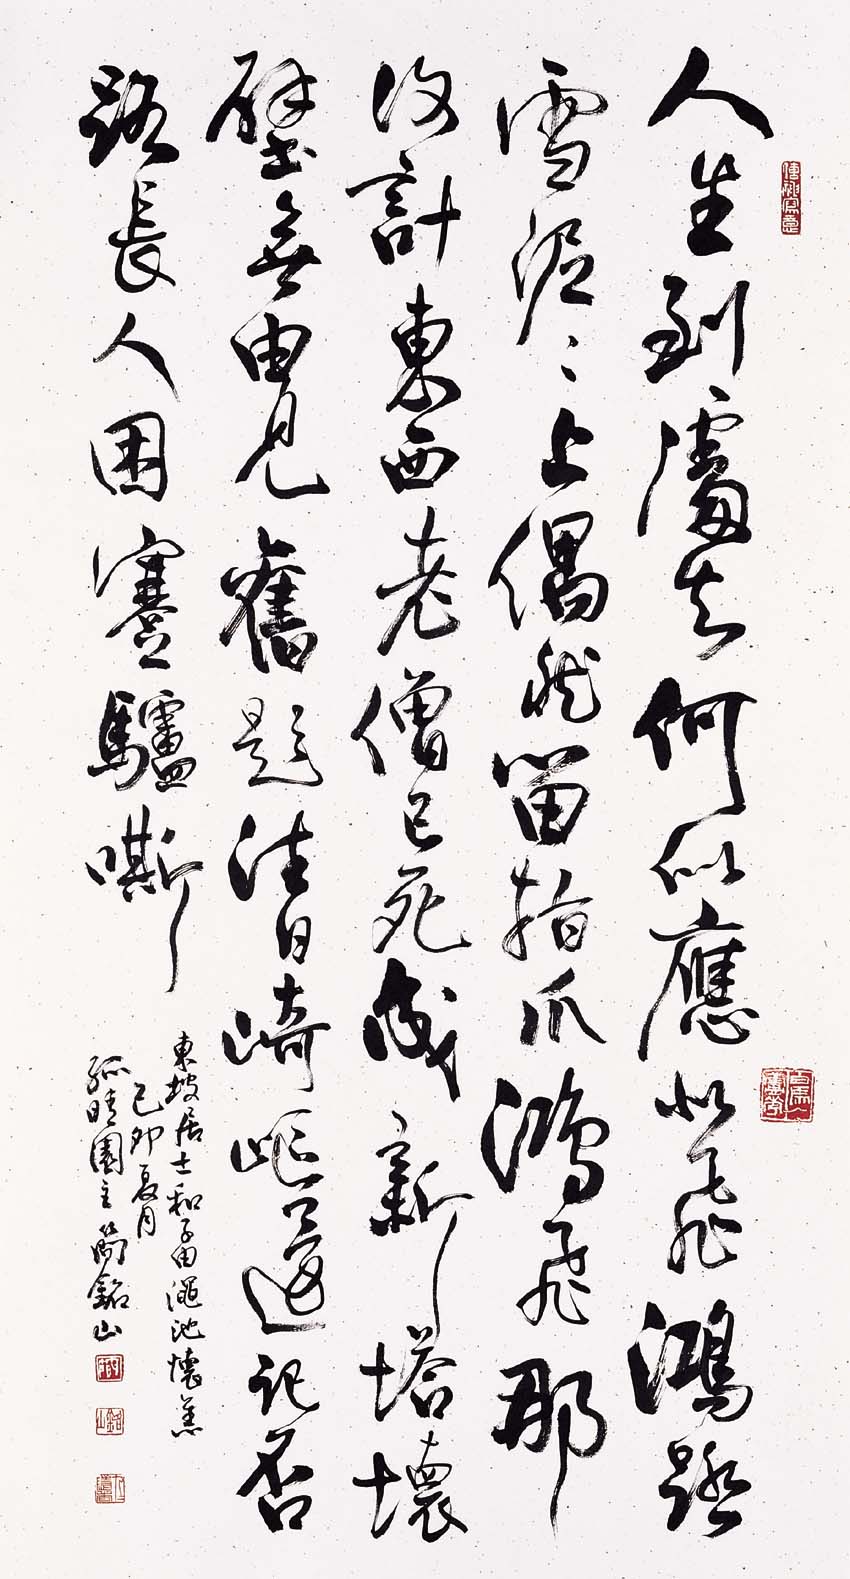 人生到處知何似應似飛鴻踏
雪泥〻上偶然留指爪鴻飛那
復計東西老僧已死成新塔壞
壁無由見舊題往日崎嶇還記否
路長人困蹇驢嘶
東坡居士和子由澠池懷舊
己卯夏月
孤晴園主簡銘山
銘山